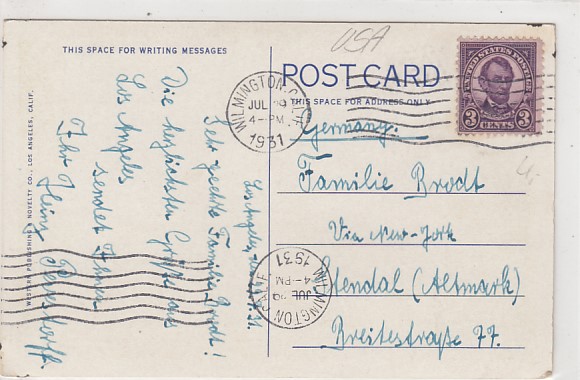 USA
THIS SPACE FOR WRITING MESSAGES
POST CARD
THIS SPACE FOR ADDRESS ONLY
UNITED STATES POSTAGE
3 3
CENTS
WILMINGTON CALIF.
JUL 29
4-PM
1931
WILMINGTON CALIF.
JUL 29
4-PM
1931
WESTERN PUBLISHING & NOVELTY CO., LOS ANGELES, CALIF.
Los Angeles,
Sehr geehrte Familie Brodt!
Die herzlichsten Grüße aus
Los Angeles
sendet Ihnen
Ihr Heinz
Germany.
Familie Brodt
Via New-York
Stendal (Altmark)
Breitestraße 77.